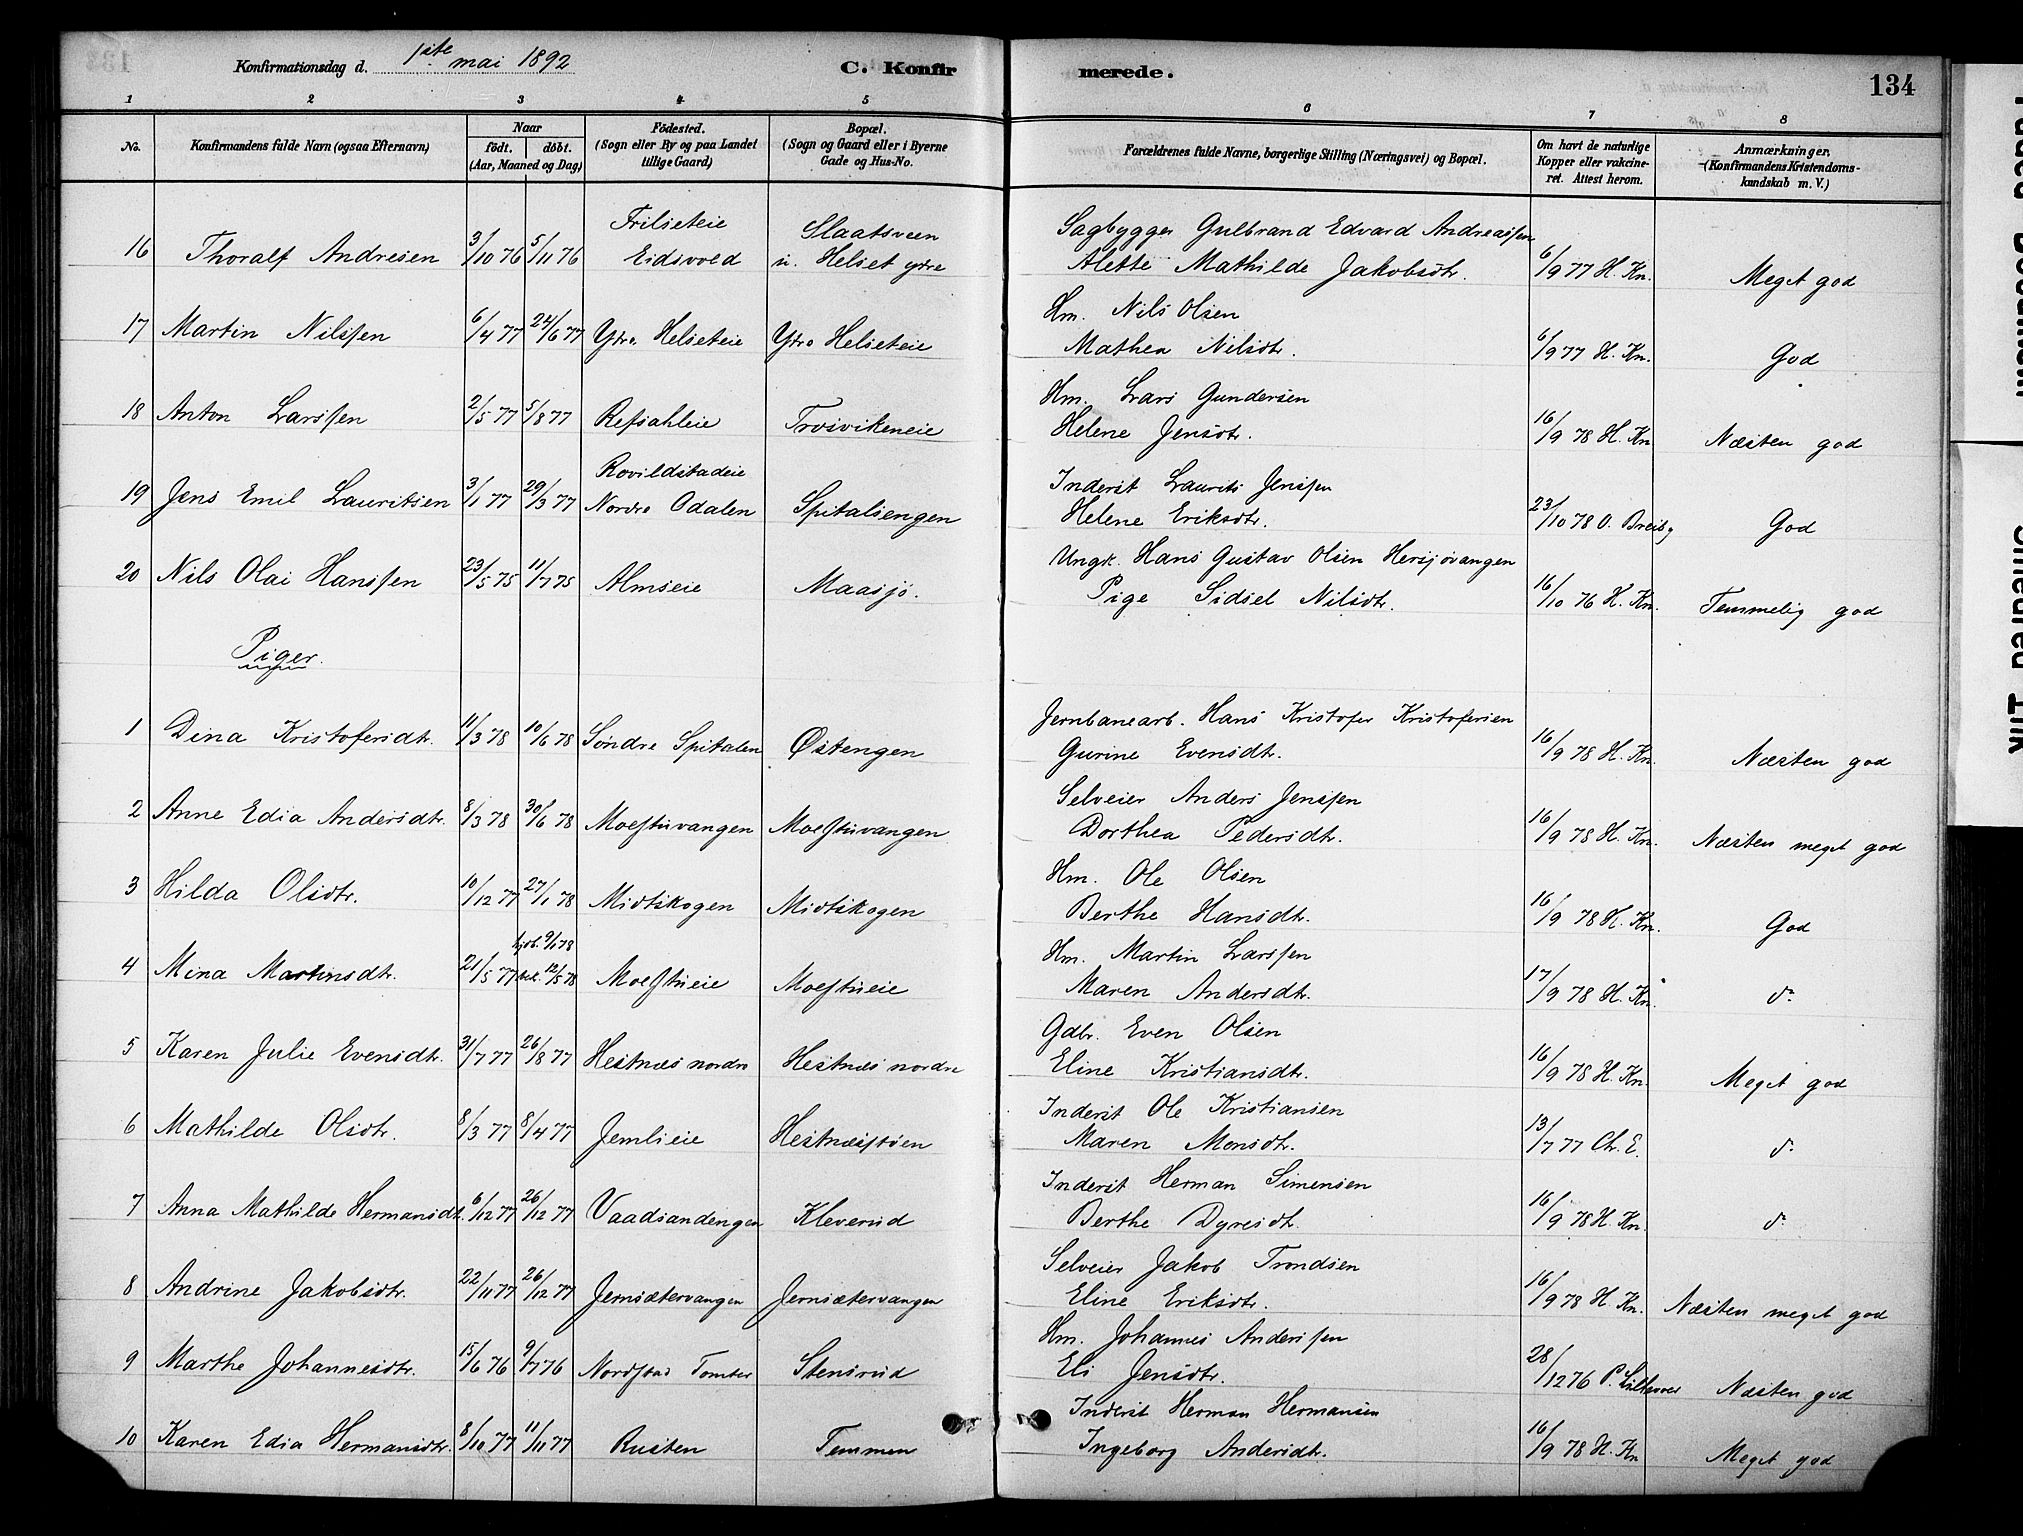 Konfirmationsdag d. 1ste mai 1892 C. Konfirmerede. 134
1 2 3 4 5 6 7 8
No. Konfirmandens fulde Navn (ogsaa Efternavn) Naar født. døbt. (Aar, Maaned og Dag) Fødested. (Sogn eller By og paa Landet tillige Gaard) Bopæl. (Sogn og Gaard eller i Byerne Gade og Hus-No. Forældrenes fulde Navne, borgerlige Stilling (Næringsvei) og Bopæl. Om havt de naturlige Kopper eller vakcineret. Attest herom. Anmærkninger. (Konfirmandens Kristendomskundskab m. V.)
Frilseteie Slaatsveen Sagbygger Gulbrand Edvard Andreassen
16 Thoralf Andresen 3/10 76 5/11 76 Eidsvold u. Helset ydre Alette Mathilde Jakobsdtr. 6/9 77 H. Kn. Meget god
Hm. Nils Olsen
17 Martin Nilssen 6/4 77 24/6 77 Ydre Helseteie Ydre Helseteie Mathea Nilsdtr. 6/9 77 H. Kn. God
Hm. Lars Gundersen
18 Anton Larssen 2/5 77 5/8 77 Refsahleie Trosvikeneie Helene Jensdtr. 16/9 78 H. Kn. Næsten god
Rovildstadeie Inderst Laurits Jenssen
19 Jens Emil Lauritsen 3/1 77 29/3 77 Nordre Odalen Spitalsengen Helene Eriksdtr. 23/10 78 O. God
Ungk. Hans Gustav Olsen Hersjøvangen
20 Nils Olai Hanssen 23/5 75 11/7 75 Almseie Maasjø. Pige Sidsel Nilsdtr. 16/10 76 H. Kn. Temmelig god
Piger.
Jernbanearb. Hans Kristofer Kristofersen
1 Dina Kristofersdtr. 11/3 78 10/6 78 Søndre Spitalen Østengen Gurine Evensdtr. 16/9 78 H. Kn. Næsten god
Selveier Anders Jenssen
2 Anne Edia Andersdtr. 8/3 78 30/6 78 Moestuvangen Moestuvangen Dorthea Pedersdtr. 16/9 78 H. Kn. Næsten meget god
Hm. Ole Olsen
3 Hilda Olsdtr. 10/12 77 27/1 78 Midtskogen Midtskogen Berthe Hansdtr. 16/9 78 H. Kn. God
hjdb. 9/1 78 Hm. Martin Larssen
4 Mina Martinsdtr. 21/5 77 bek. 12/5 78 Moestueie Moestueie Maren Andersdtr. 17/9 78 H. Kn. do
Gdbr. Even Olsen
5 Karen Julie Evensdtr. 31/7 77 26/8 77 Hestnæs nordre Hestnæs nordre Eline Kristiansdtr. 16/9 78 H. Kn. Meget god
Inderst Ole Kristiansen
6 Mathilde Olsdtr. 8/3 77 8/4 77 Jemlieie Hestnæsstøen Maren Monsdtr. 13/7 77 Chr. E. do
Inderst Herman Simensen
7 Anna Mathilde Hermansdtr. 6/12 77 26/12 77 Vaadsandengen Kleverud Berthe Dyresdtr. 16/9 78 H. Kn. do
Selveier Jakob Trondsen
8 Andrine Jakobsdtr. 22/11 77 26/12 77 Jernsætervangen Jernsætervangen Eline Eriksdtr. 16/9 78 H. Kn. Næsten meget god
Hm. Johannes Anderssen
9 Marthe Johannesdtr. 15/6 76 9/7 76 Nordstad Tomter Stensrud Eli Jensdtr. 28/12 76 P. Næsten god
Inderst Herman Hermansen
10 Karen Edia Hermansdtr. 8/10 77 11/11 77 Rusten Temmen Ingeborg Andersdtr. 16/9 78 H. Kn Meget god